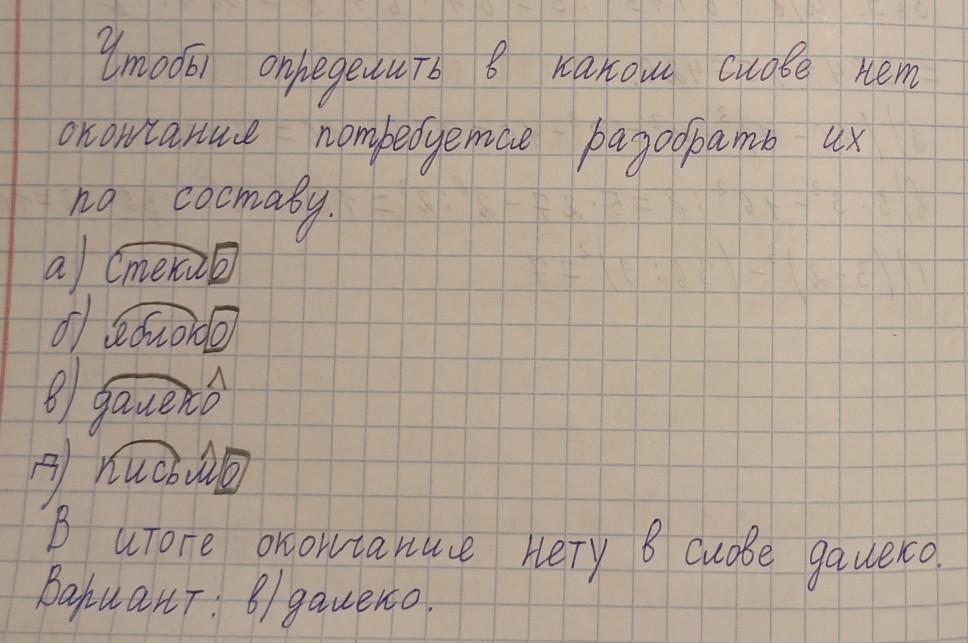 Чтобы определить в каком слове нет
окончания потребуется разобрать их
по составу.
а) стекло
б) яблоко
в) далеко
д) письмо
В итоге окончания нету в слове далеко.
Вариант: в) далеко.